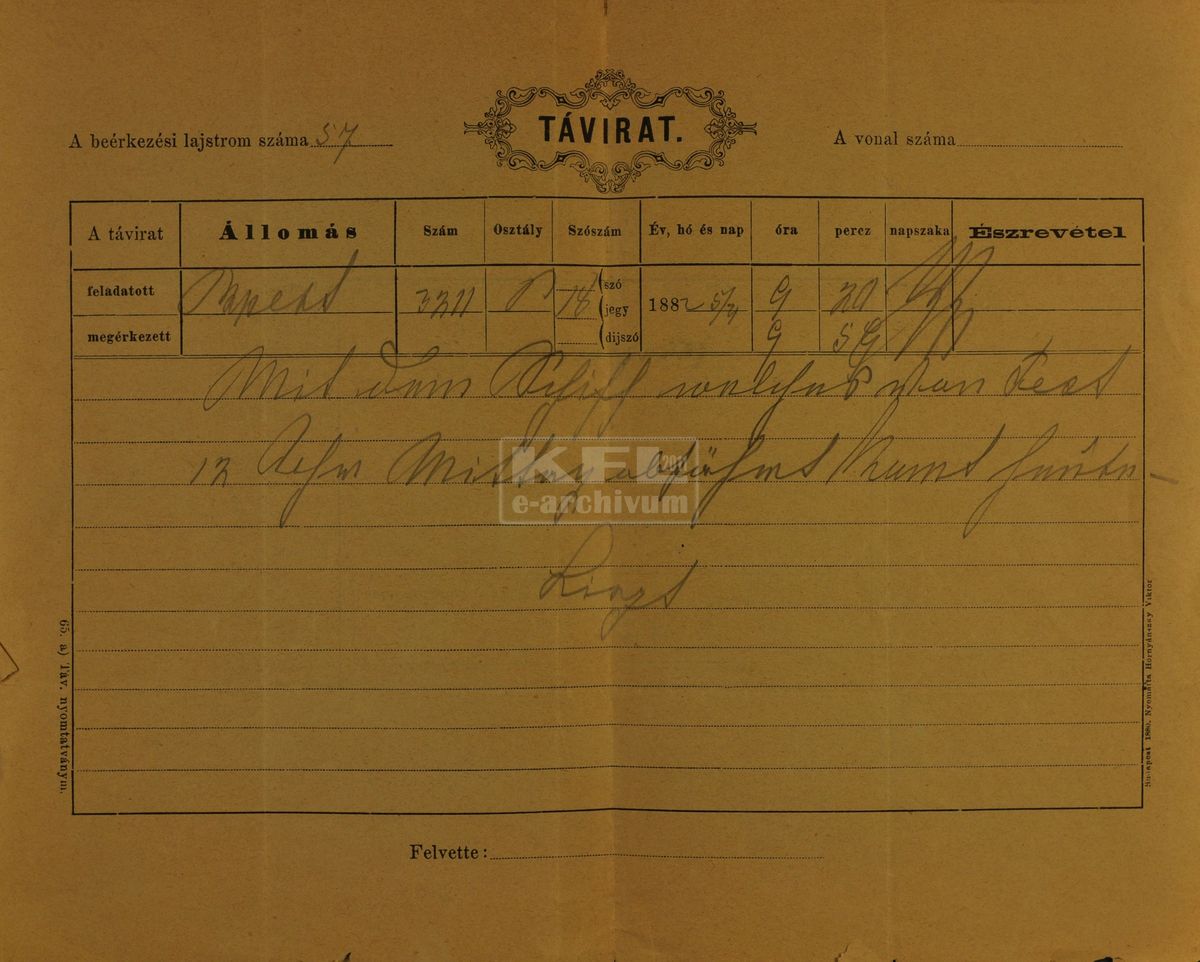 TÁVIRAT.
A beérkezési lajstrom száma 57
A vonal száma
A távirat Állomás Szám Osztály Szószám Év, hó és nap óra percz napszaka Észrevétel
feladatott Bpest 3211 18 szó jegy díjszó 1882 5/4 9 20
megérkezett 9 59
Mit dem Schiff welches von Pest
12 Uhr Mittag abfährt kumt heute
Liszt
Felvette :
65. a) Táv. nyomtatványm.
Budapest 1880. Nyomatta Hornyánszky Viktor
KFL
e-archivum